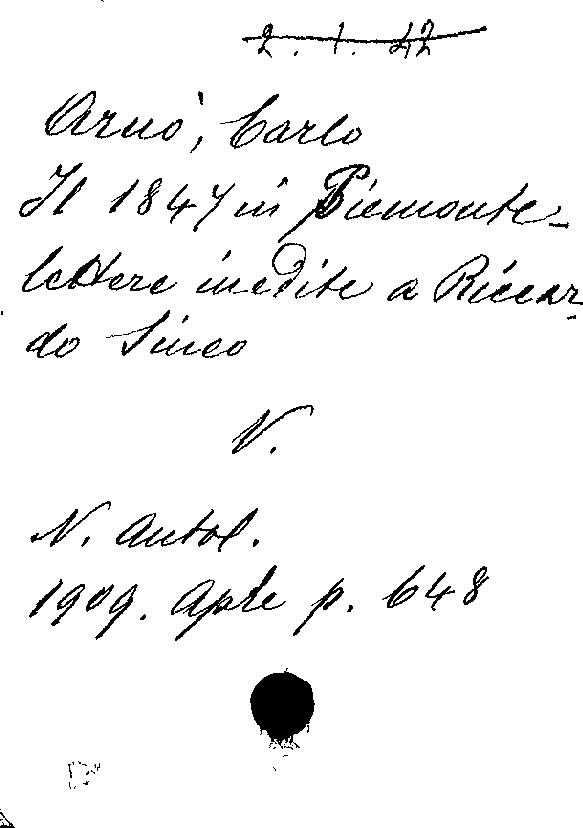 2. 1. 42
Arnò, Carlo
Il 1847 in Piemonte -
lettere inedite a Riccar-
do Sineo
V.
N. Antol.
1909. Aple p. 648